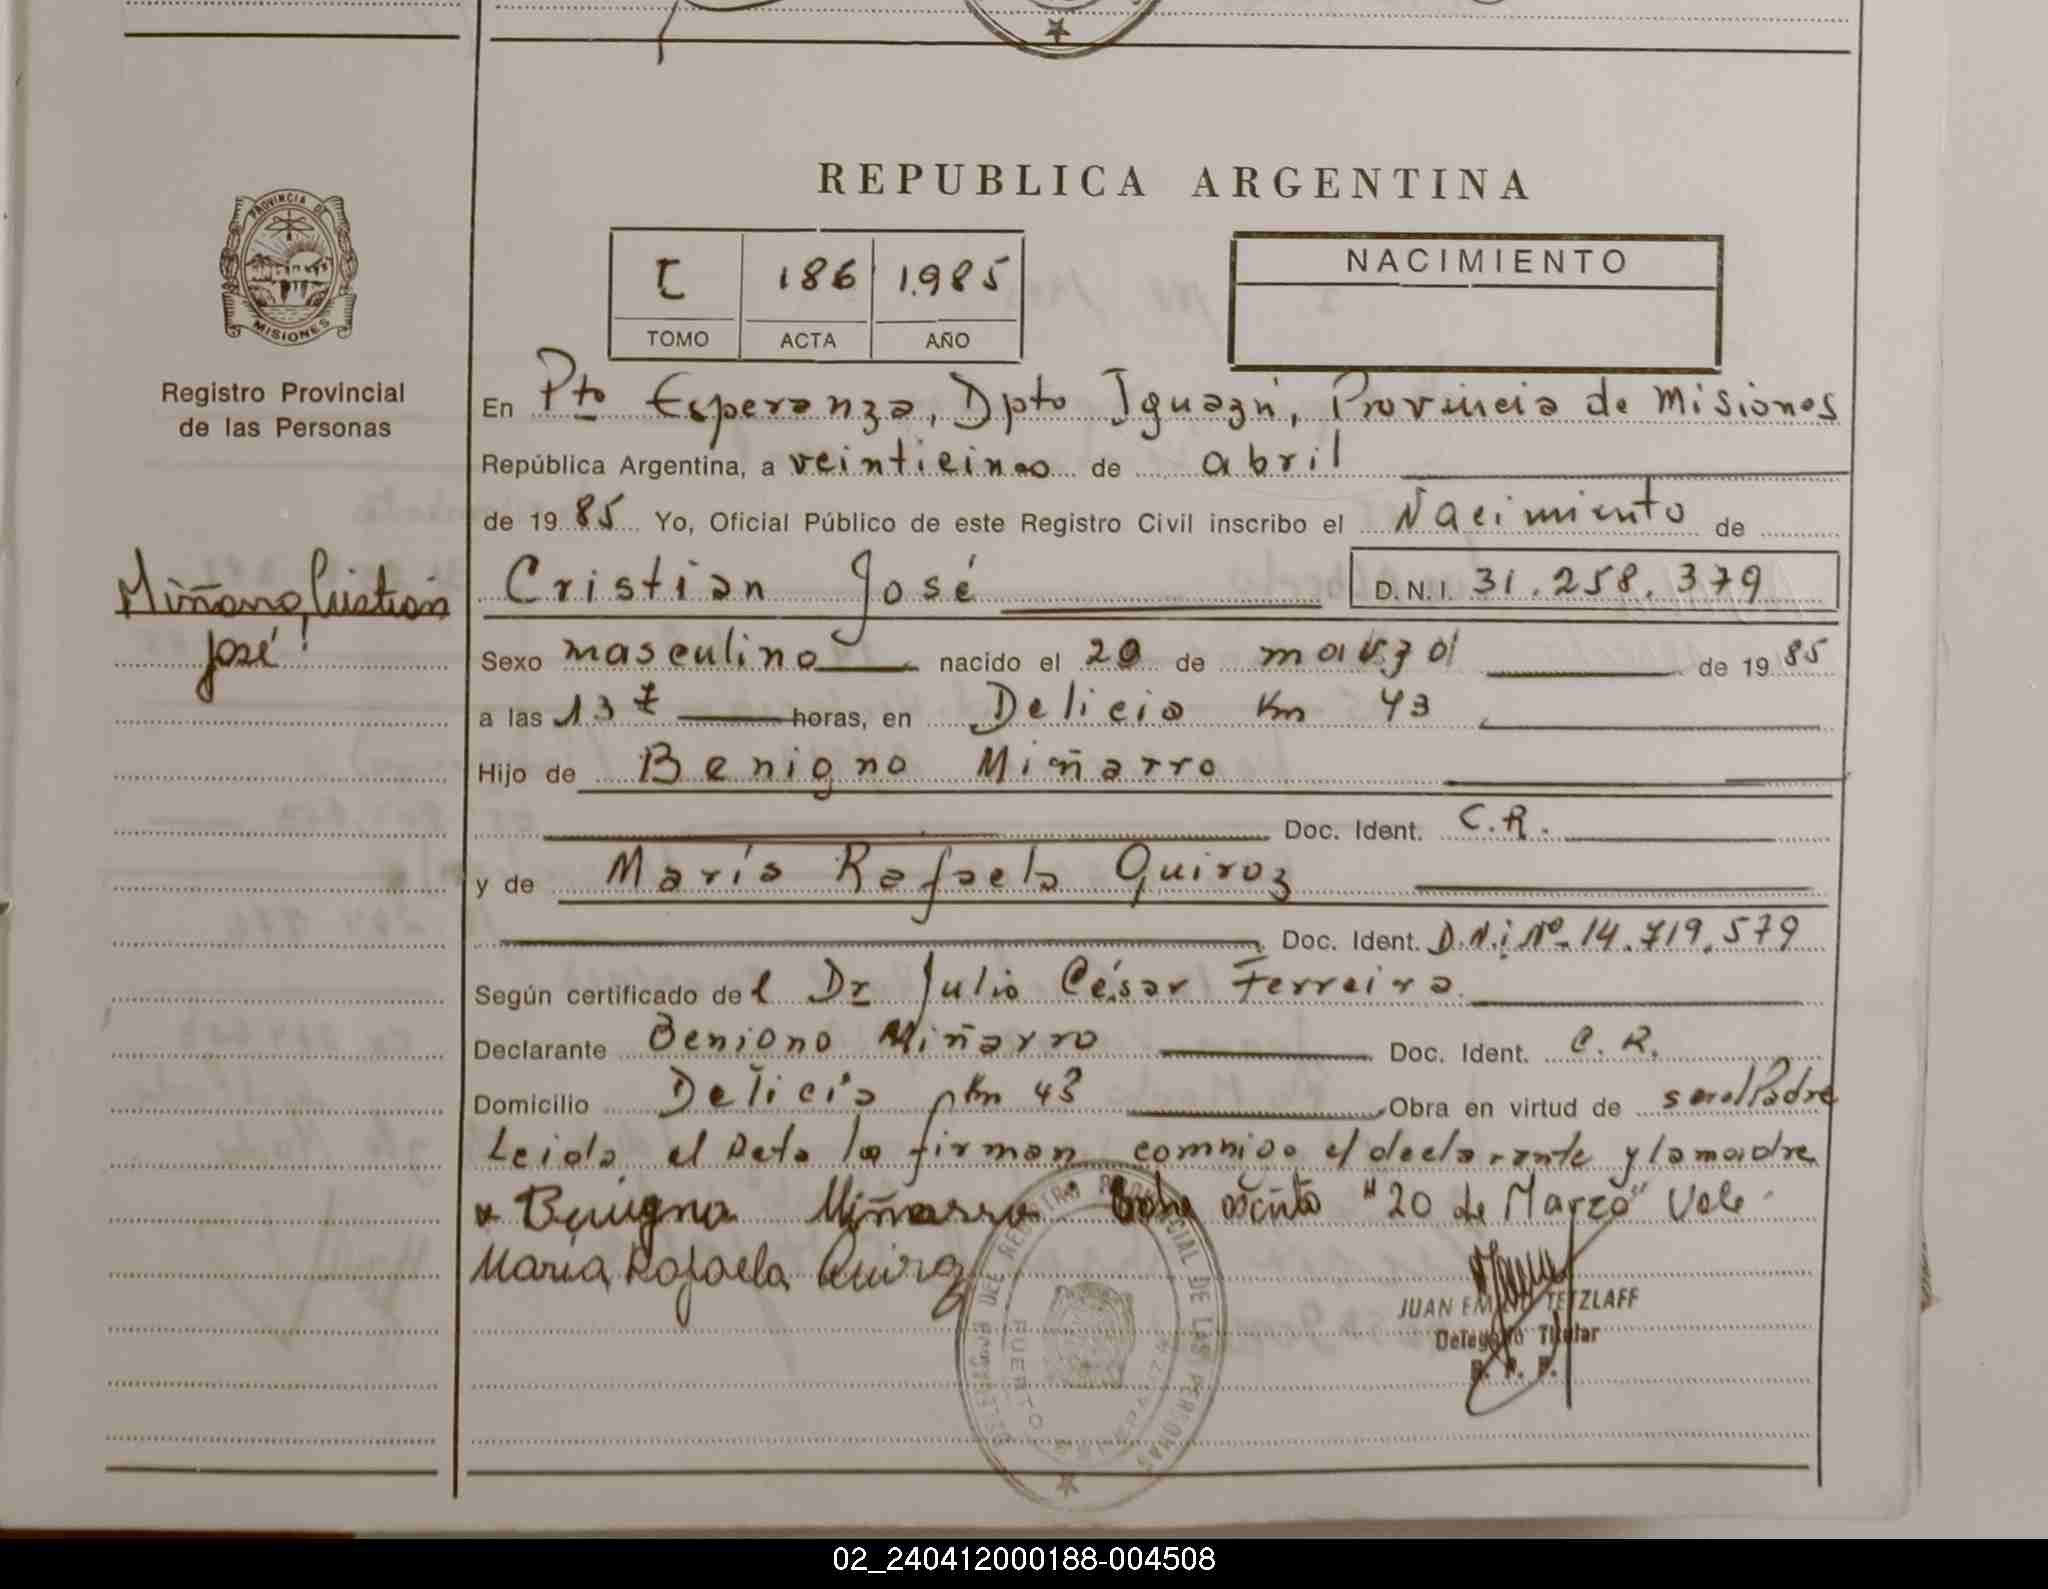 REPUBLICA ARGENTINA
PROVINCIA DE
MISIONES
Registro Provincial
de las Personas
I 186 1.985
TOMO ACTA AÑO
NACIMIENTO
En Pto Esperanza, Dpto Iguazú, Provincia de Misiones
República Argentina, a veinticinco de abril
de 19 85 Yo, Oficial Público de este Registro Civil inscribo el Nacimiento de
Miñarro, Cristian
José
Cristian José D.N.I. 31.258.379
Sexo masculino nacido el 20 de marzo de 19 85
a las 13 horas, en Delicia Km 43
Hijo de Benigno Miñarro
Doc. Ident. C.R.
y de María Rafaela Quiroz
Doc. Ident. D.N.i Nº 14.719.579
Según certificado del Dr Julio César Ferreira
Declarante Benigno Miñarro Doc. Ident. C.R.
Domicilio Delicia Km 43 Obra en virtud de ser el Padre
Leida el Acta la firman conmigo el declarante y la madre
Benigno Miñarro Sobre escrito "20 de Marzo" Vale
María Rafaela Quiroz
JUAN TETZLAFF
Delegado Titular
R. P. P.
DELEGACION DEL REGISTRO PROVINCIAL DE LAS PERSONAS
PUERTO ESPERANZA
02_240412000188-004508